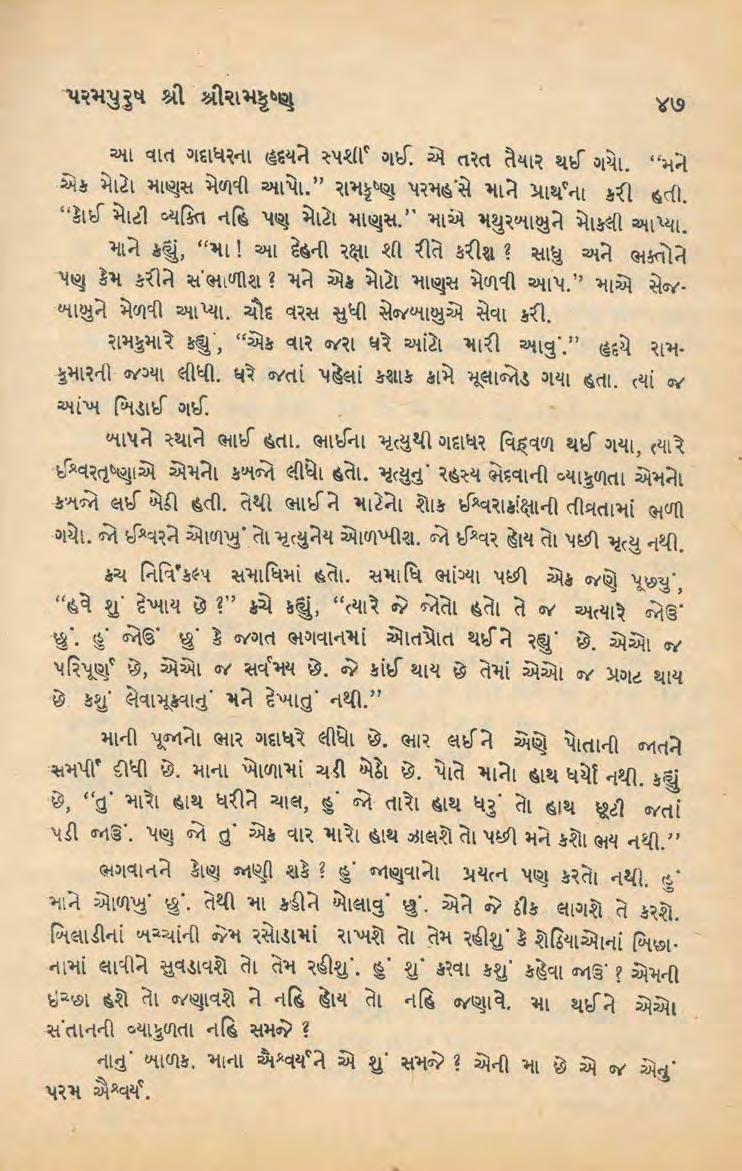 પરમપુરુષ શ્રી શ્રીરામકૃષ્ણ ૪૭
આ વાત ગદાધરના હૃદયને સ્પર્શી ગઈ. એ તરત તૈયાર થઈ ગયો. “મને
એક મોટો માણસ મેળવી આપો.” રામકૃષ્ણ પરમહંસે માને પ્રાર્થના કરી હતી.
“કોઈ મોટી વ્યક્તિ નહિ પણ મોટો માણસ.” માએ મથુરબાબુને મોકલી આપ્યા.
માને કહ્યું, “મા! આ દેહની રક્ષા શી રીતે કરીશ? સાધુ અને ભક્તોને
પણ કેમ કરીને સંભાળીશ? મને એક મોટો માણસ મેળવી આપ.” માએ સેજ-
બાબુને મેળવી આપ્યા. ચૌદ વરસ સુધી સેજબાબુએ સેવા કરી.
રામકુમારે કહ્યું, “એક વાર જરા ઘરે આંટો મારી આવું.” હૃદયે રામ-
કુમારની જગ્યા લીધી. ઘરે જતાં પહેલાં કશાક કામે મૂલાજોડ ગયા હતા. ત્યાં જ
આંખ બિડાઈ ગઈ.
બાપને સ્થાને ભાઈ હતા. ભાઈના મૃત્યુથી ગદાધર વિહ્વળ થઈ ગયા, ત્યારે
ઈશ્વરતૃષ્ણાએ એમનો કબજો લીધો હતો. મૃત્યુનું રહસ્ય ભેદવાની વ્યાકુળતા એમનો
કબજો લઈ બેઠી હતી. તેથી ભાઈને માટેનો શોક ઈશ્વરાકાંક્ષાની તીવ્રતામાં ભળી
ગયો. જો ઈશ્વરને ઓળખું તો મૃત્યુનેય ઓળખીશ. જો ઈશ્વર હોય તો પછી મૃત્યુ નથી.
કચ નિર્વિકલ્પ સમાધિમાં હતો. સમાધિ ભાંગ્યા પછી એક જણે પૂછ્યું,
“હવે શું દેખાય છે?” કચે કહ્યું, “ત્યારે જે જોતો હતો તે જ અત્યારે જોઉં
છું. હું જોઉં છું કે જગત ભગવાનમાં ઓતપ્રોત થઈને રહ્યું છે. એઓ જ
પરિપૂર્ણ છે, એઓ જ સર્વમય છે. જે કાંઈ થાય છે તેમાં એઓ જ પ્રગટ થાય
છે કશું લેવામૂકવાનું મને દેખાતું નથી.”
માની પૂજાનો ભાર ગદાધરે લીધો છે. ભાર લઈને એણે પોતાની જાતને
સમર્પી દીધી છે. માના ખોળામાં ચડી બેઠો છે. પોતે માનો હાથ ધર્યો નથી. કહ્યું
છે, “તું મારો હાથ ધરીને ચાલ, હું જો તારો હાથ ધરું તો હાથ છૂટી જતાં
પડી જાઉં. પણ જો તું એક વાર મારો હાથ ઝાલશે તો પછી મને કશો ભય નથી.”
ભગવાનને કોણ જાણી શકે? હું જાણવાનો પ્રયત્ન પણ કરતો નથી. હું
માને ઓળખું છું. તેથી મા કહીને બોલાવું છું. એને જે ઠીક લાગશે તે કરશે.
બિલાડીનાં બચ્ચાંની જેમ રસોડામાં રાખશે તો તેમ રહીશું કે શેઠિયાઓનાં બિછા-
નામાં લાવીને સુવડાવશે તો તેમ રહીશું. હું શું કરવા કશું કહેવા જાઉં? એમની
ઇચ્છા હશે તો જણાવશે ને નહિ હોય તો નહિ જણાવે. મા થઈને એઓ
સંતાનની વ્યાકુળતા નહિ સમજે?
નાનું બાળક. માના ઐશ્વર્યને એ શું સમજે? એની મા છે એ જ એનું
પરમ ઐશ્વર્ય.